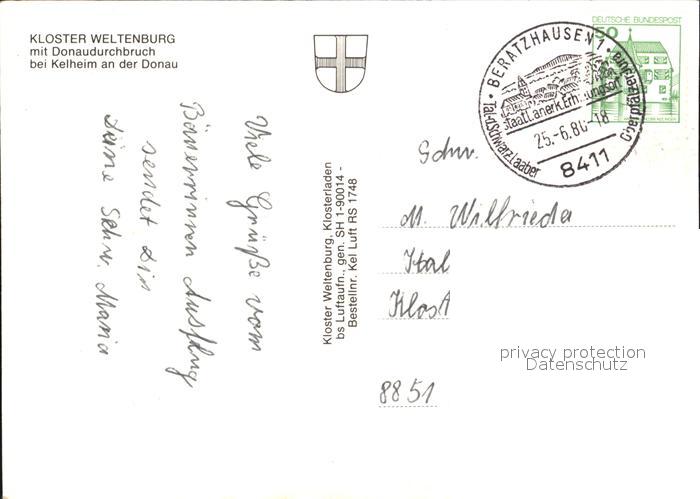 KLOSTER WELTENBURG
mit Donaudurchbruch
bei Kelheim an der Donau
Viele Grüße vom
Bäuerinnen Ausflug
sendet Dir
Deine Schw. Maria
Kloster Weltenburg, Klosterladen
bs Luftaufn., gen. SH 1-90014 -
Bestellnr. Kel Luft RS 1748
DEUTSCHE BUNDESPOST
50
BERATZHAUSEN 1
Staatl. anerk. Erholungsort
25.-6.80-18
8411
Tal d. Schwarz. Laaber
Oberpfalz
Schw.
M. Wilfrieda
Ital
Klost
8851
privacy protection
Datenschutz